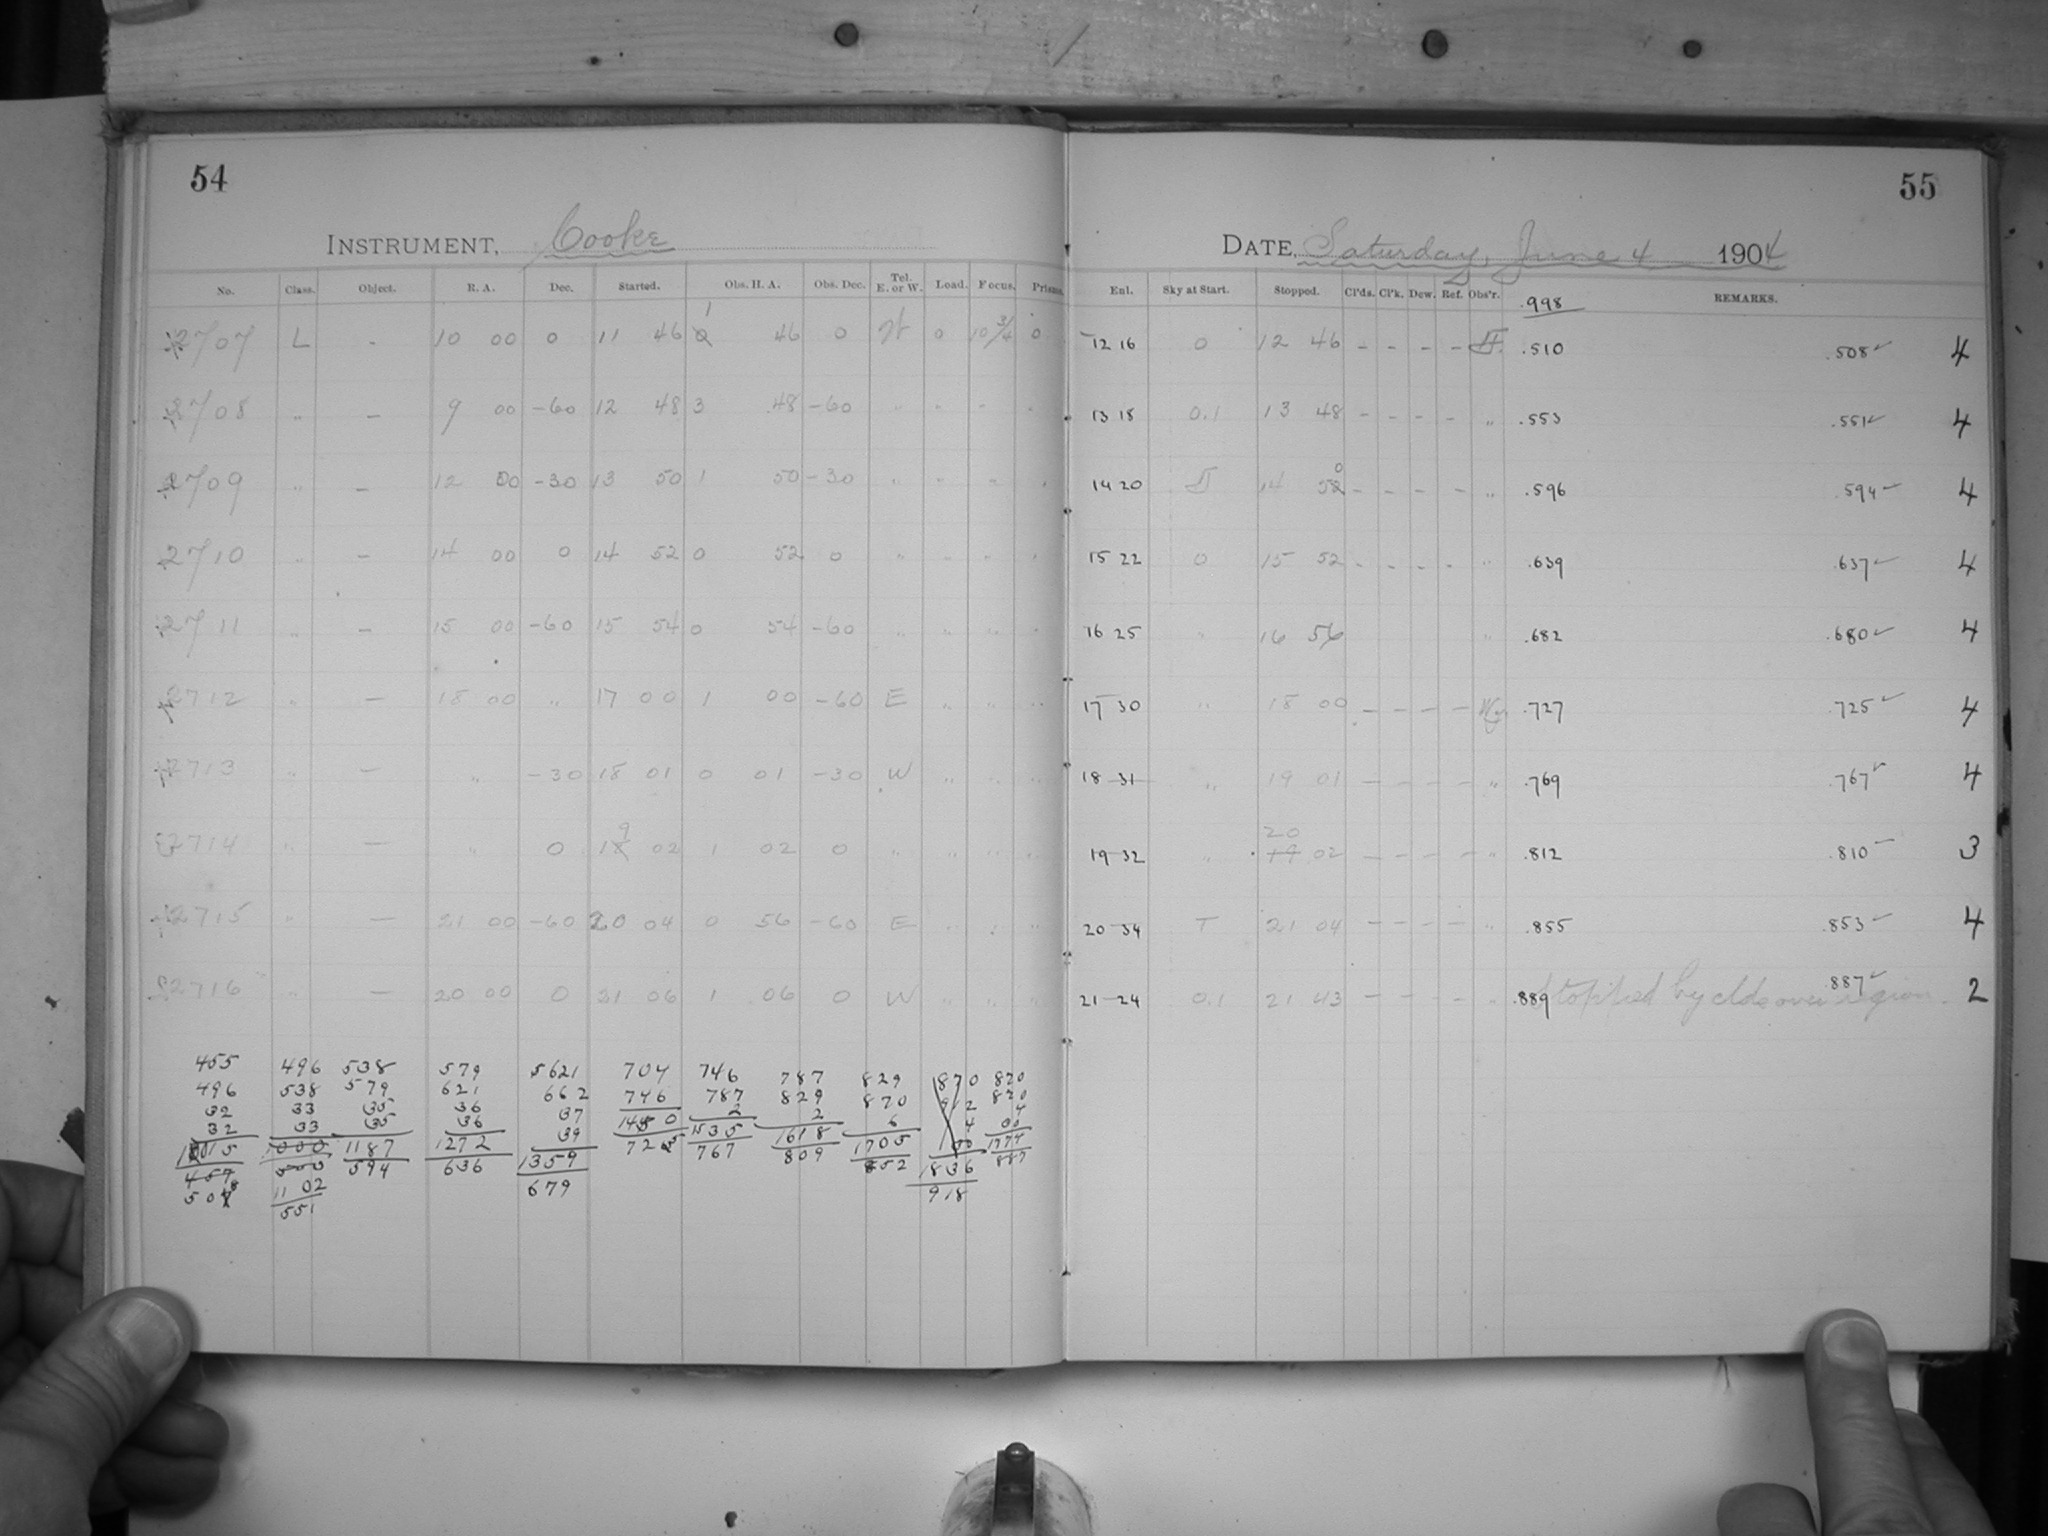 54
INSTRUMENT, Cooke
No. Class. Object. R. A. Dec. Started. Obs. H. A. Obs. Dec. Tel. E. or W. Load. Focus. Prisms.
2707 L - 10 00 0 11 46 1 46 0 W 0 10 3/4 0
2708 " - 9 00 -60 12 48 3 48 -60 " " " "
2709 " - 12 00 -30 13 50 1 50 -30 " " " "
2710 " - 14 00 0 14 52 0 52 0 " " " "
2711 " - 15 00 -60 15 54 0 54 -60 " " " "
2712 " - 18 00 " 17 00 1 00 -60 E " " "
2713 " - " -30 18 01 0 01 -30 W " " "
2714 " - " 0 19 02 1 02 0 " " " "
2715 " - 21 00 -60 20 04 0 56 -60 E " " "
2716 " - 20 00 0 21 06 1 06 0 W " " "
455 496 538 579 5621 704 746 787 829 870 870
496 538 579 621 662 746 787 829 870 912 870
32 33 35 36 37 1450 2 2 6 4 4
32 33 35 36 39 725 1535 1618 1705 00 00
1015 1000 1187 1272 1359 767 809 852 1836 1774
457 500 594 636 679 918 887
508 1102
551
55
DATE, Saturday, June 4 1904
Enl. Sky at Start. Stopped. Cl'ds. Cl'k. Dew. Ref. Obs'r. .998 REMARKS.
12 16 0 12 46 - - - - .510 .508 4
13 18 0.1 13 48 - - - - " .553 .551 4
14 20 14 50 - - - - " .596 .594 4
15 22 0 15 52 - - - - " .639 .637 4
16 25 " 16 56 " .682 .680 4
17 30 " 18 00 - - - - .727 .725 4
18 31 " 19 01 - - - - " .769 .767 4
19 32 " 20 02 - - - - " .812 .810 3
20 34 T 21 04 - - - - " .855 .853 4
21 24 0.1 21 43 - - - - " .889 Stopped by clds over region. .887 2